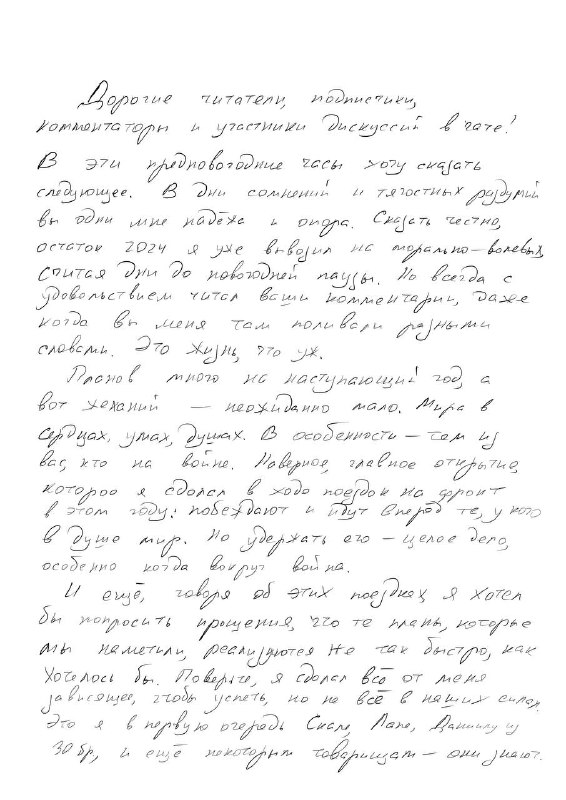 Дорогие читатели, подписчики,
комментаторы и участники дискуссий в чате!
В эти предновогодние часы хочу сказать
следующее. В дни сомнений и тягостных раздумий
вы одни мне надёжа и опора. Сказать честно,
остаток 2024 я уже вывозил на морально-волевых,
считая дни до новогодней паузы. Но всегда с
удовольствием читал ваши комментарии, даже
когда вы меня там поливали разными
словами. Это жизнь, что уж.
Планов много на наступающий год, а
вот желаний — неожиданно мало. Мира в
сердцах, умах, душах. В особенности — тем из
вас, кто на войне. Наверное, главное открытие,
которое я сделал в ходе поездок на фронт
в этом году: побеждают и идут вперёд те, у кого
в душе мир. Но удержать его — целое дело,
особенно когда вокруг война.
И ещё, говоря об этих поездках, я хотел
бы попросить прощения, что те планы, которые
мы наметили, реализуются не так быстро, как
хотелось бы. Поверьте, я сделал всё от меня
зависящее, чтобы успеть, но не всё в наших силах.
Это я в первую очередь Скале, Лапе, Даниилу из
30 бр, и ещё некоторым товарищам — они знают.